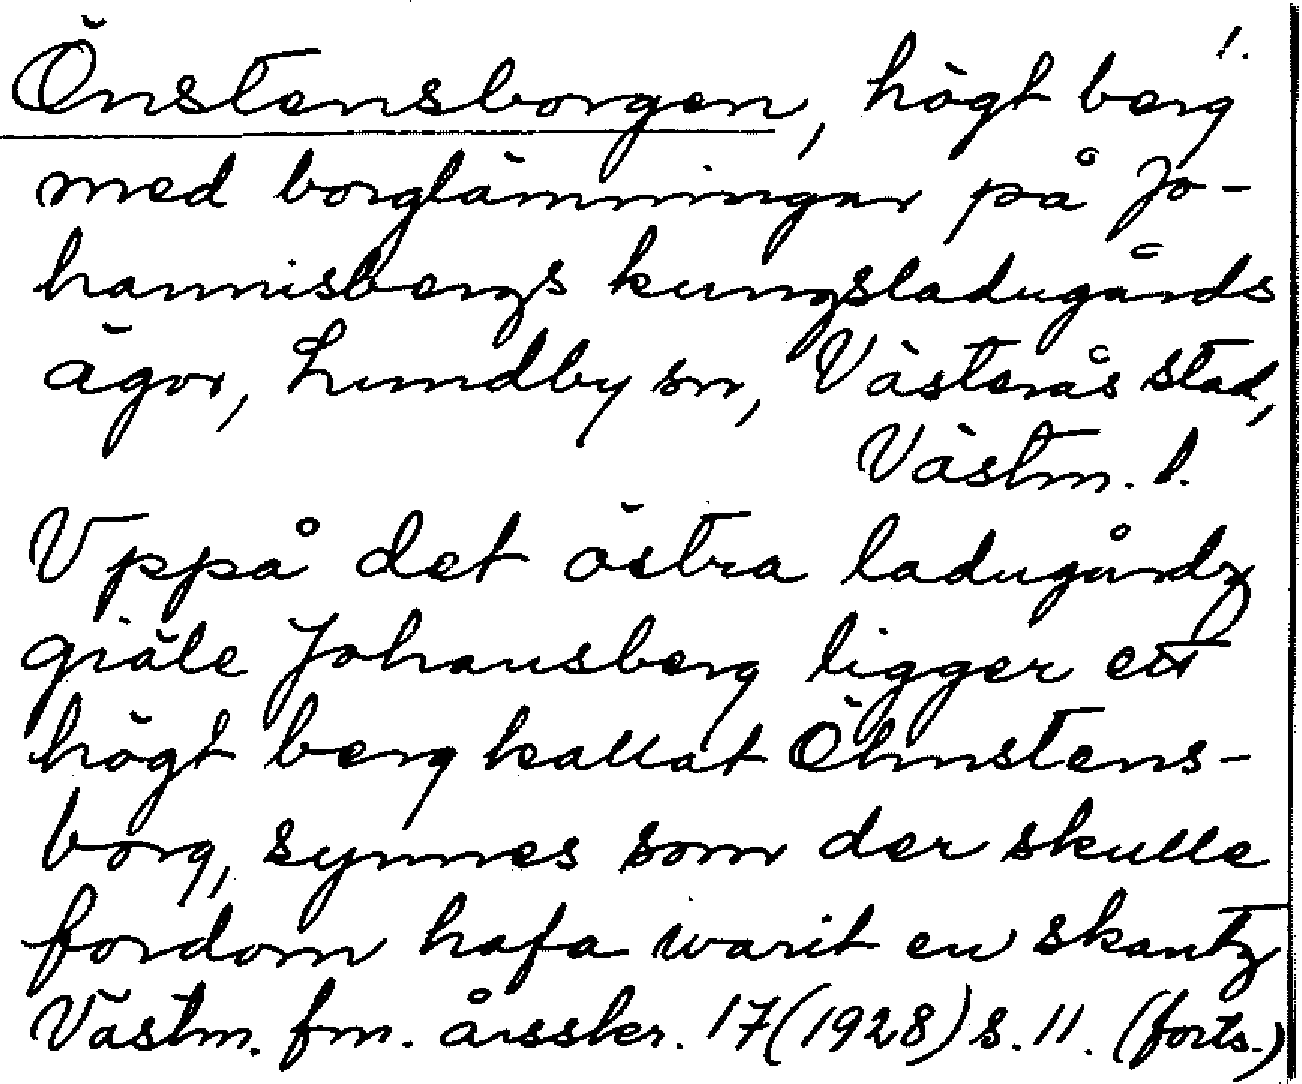 1.
Önstensborgen, högt berg
med borglämningar på Jo-
hannisbergs kungsladugårds
ägor, Lundby sn, Västerås stad,
Västm. l.
Vppå det östra ladugårdz
giäle Johansberg ligger ett
högt berg kallat Öhnstens-
borg, synnes som der skulle
fordom hafa warit en skantz
Västm. fm. årsskr. 17 (1928) s. 11. (forts.)